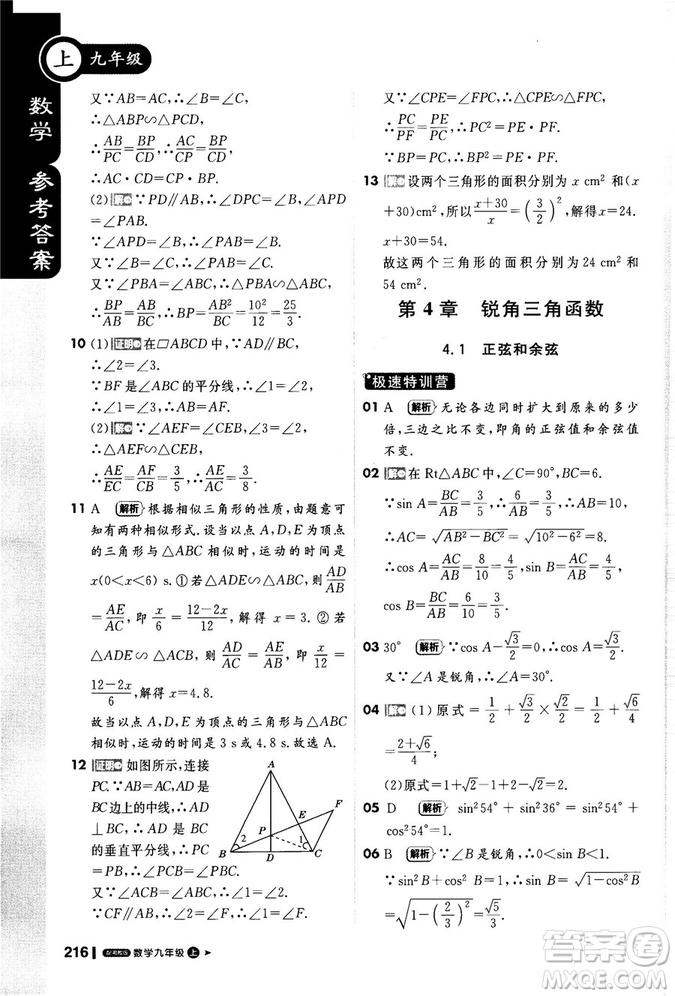 上 九年级
数学 参考答案
又∵AB=AC,∴∠B=∠C,
∴△ABP∽△PCD,
∴AB/PC=BP/CD,∴AC/PC=BP/CD,
∴AC·CD=BP·PC.
(2)解 ∵PD∥AB,∴∠DPC=∠B,∠APD
=∠PAB.
又∵∠APD=∠C,∴∠PAB=∠C.
又∵∠PBA=∠ABC,∴△PBA∽△ABC,
∴BP/AB=AB/BC,∴BP=AB²/BC=10²/12=25/3.
10 (1)证明 在▱ABCD中,AD∥BC,
∴∠2=∠3.
∵BF是∠ABC的平分线,
∴∠1=∠2,∴∠1=∠3,∴AB=AF.
(2)解 ∵∠AEF=∠CEB,∠2=∠3,
∴△AEF∽△CEB,
∴AE/EC=AF/CB=3/5,∴AE/AC=3/8.
11 A 解析 根据相似三角形的性质,由题意可
知有两种相似形式.设当以点A,D,E为顶点
的三角形与△ABC相似时,运动的时间是
x(0<x<6) s.①若△ADE∽△ABC,则AD/AB
=AE/AC,即x/6=(12-2x)/12,解得x=3.②若
△ADE∽△ACB,则AD/AC=AE/AB,即x/12=
(12-2x)/6,解得x=4.8.
故当以点A,D,E为顶点的三角形与△ABC相
似时,运动的时间是3 s或4.8 s.故选A.
12 证明 如图所示,连接
PC.∵AB=AC,AD是
BC边上的中线,∴AD
⊥BC,∴AD是线段BC
的垂直平分线,∴PC
=PB,∴∠PBC=
∠PCB,∴∠1=∠2.
∵CF∥AB,∴∠F=∠2,∴∠1=∠F.
A
F
E
P
2
1
B
D
C
216 数学九年级 上
又∵∠CPE=∠FPC,∴△CPE∽△FPC,
∴PC/PF=PE/PC,∴PC²=PE·PF.
∵BP=PC,∴BP²=PE·PF.
13 解 设两个三角形的面积分别为x cm²和(x
+30)cm²,所以(x+30)/x=(3/2)²,解得x=24.
∴x+30=54.
故这两个三角形的面积分别为24 cm²,
54 cm².
第4章 锐角三角函数
4.1 正弦和余弦
极速特训营
01 A 解析 无论各边同时扩大到原来的多少
倍,三边之比不变,即角的正弦值和余弦值
不变.
02 解 在Rt△ABC中,∠C=90°,BC=6.
∵sin A=BC/AB=3/5,∴6/AB=3/5,∴AB=10,
∴AC=√(AB²-BC²)=√(10²-6²)=8,
∴sin B=AC/AB=8/10=4/5,cos A=AC/AB=4/5,
cos B=BC/AB=6/10=3/5.
03 30° 解析 ∵cos A-√3/2=0,∴cos A=√3/2.
又∵∠A是锐角,∴∠A=30°.
04 解 (1)原式=1/2+√3/2×√2/2=1/2+√6/4=
(2+√6)/4.
(2)原式=1+√2-1=√2.
05 D 解析 sin²54°+sin²36°=sin²54°+
cos²54°=1.
06 B 解析 ∵∠B是锐角,∴0<sin B<1.
∵sin²B+cos²B=1,∴sin B=√(1-cos²B)
=√(1-(2/3)²)=√5/3.